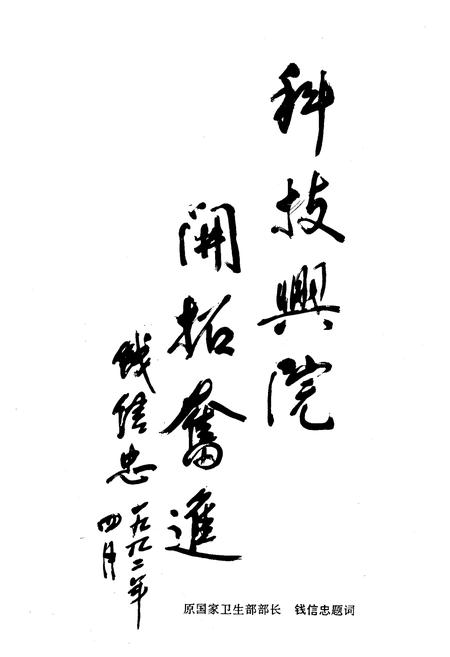 科技興院
開拓奮進
钱信忠
一九九二年
四月
原国家卫生部部长 钱信忠题词